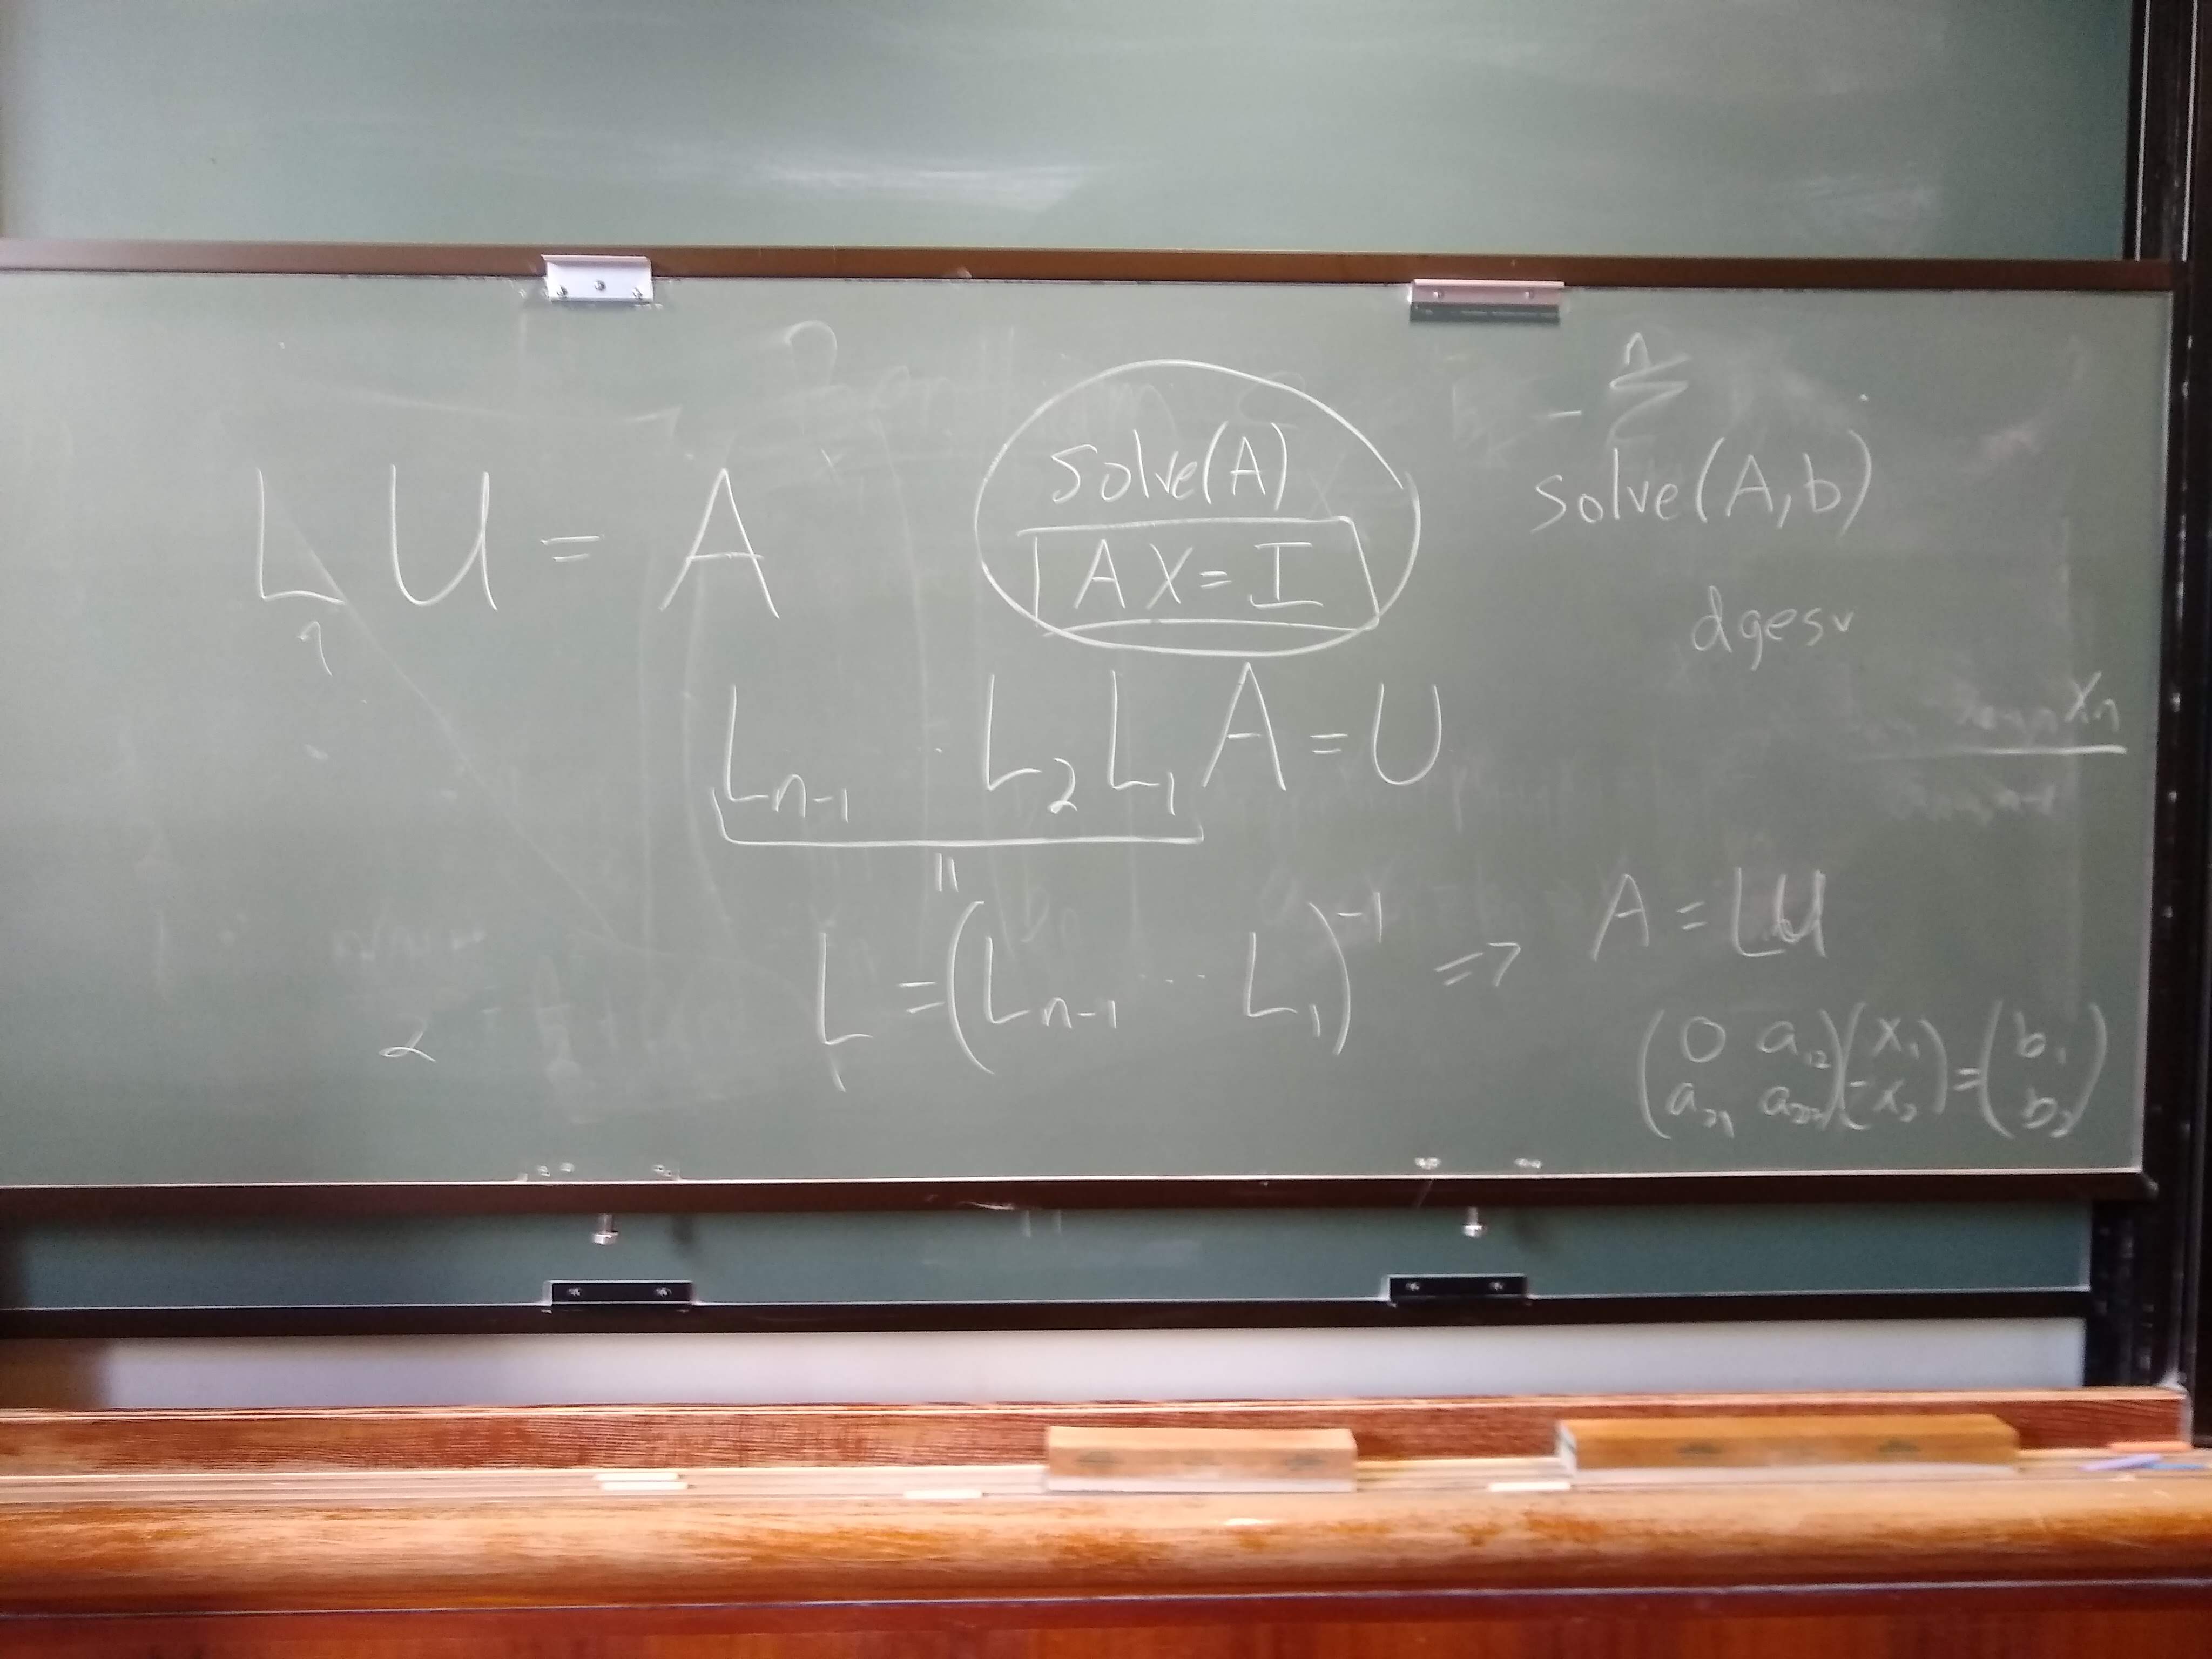 L U = A
solve(A)
AX = I
- Σ n
solve(A,b)
dgesv
xₙ
Lₙ₋₁ · L₂ L₁ A = U
"
L = (Lₙ₋₁ ··· L₁)⁻¹ => A = LU
(0 a₁₂)(x₁) = (b₁)
(a₂₁ a₂₂)(x₂) = (b₂)